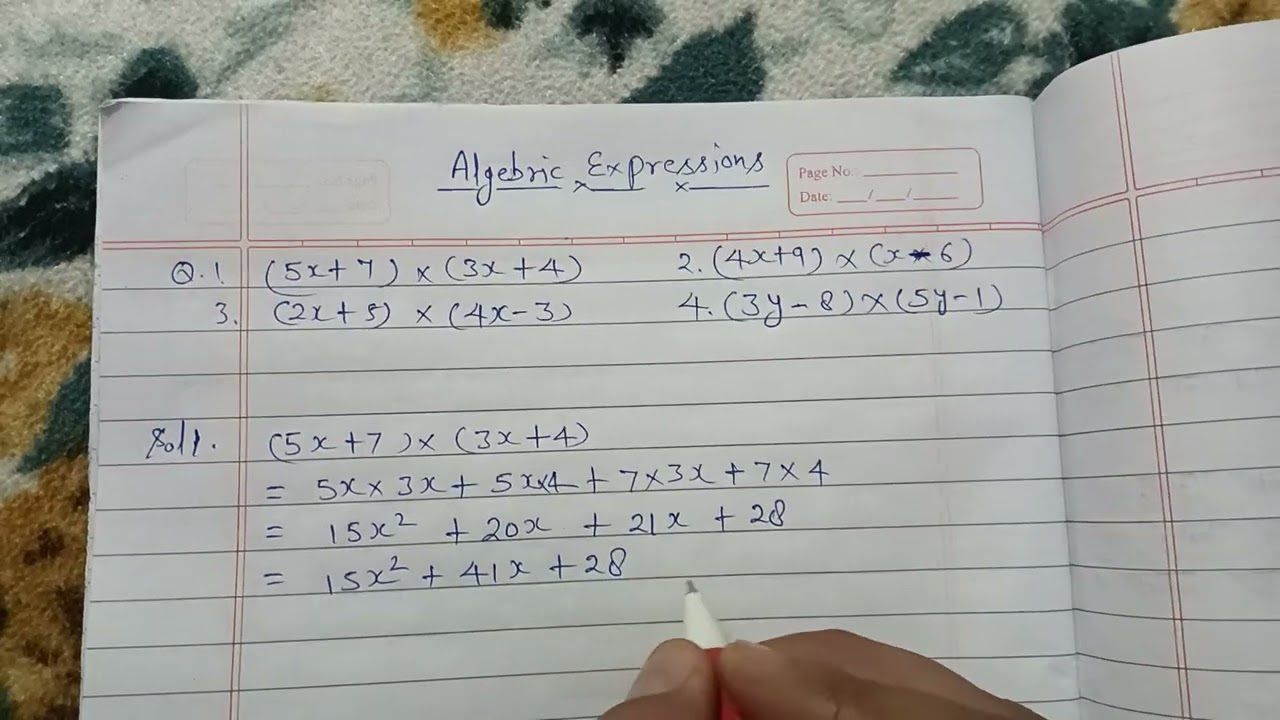 Algebric Expressions
Page No.
Date: / /
Q.1 (5x+7) × (3x+4) 2. (4x+9) × (x-6)
3. (2x+5) × (4x-3) 4. (3y-8)×(5y-1)
Sol1. (5x+7)×(3x+4)
= 5x×3x+5x×4+7×3x+7×4
= 15x² +20x +21x +28
= 15x²+41x+28